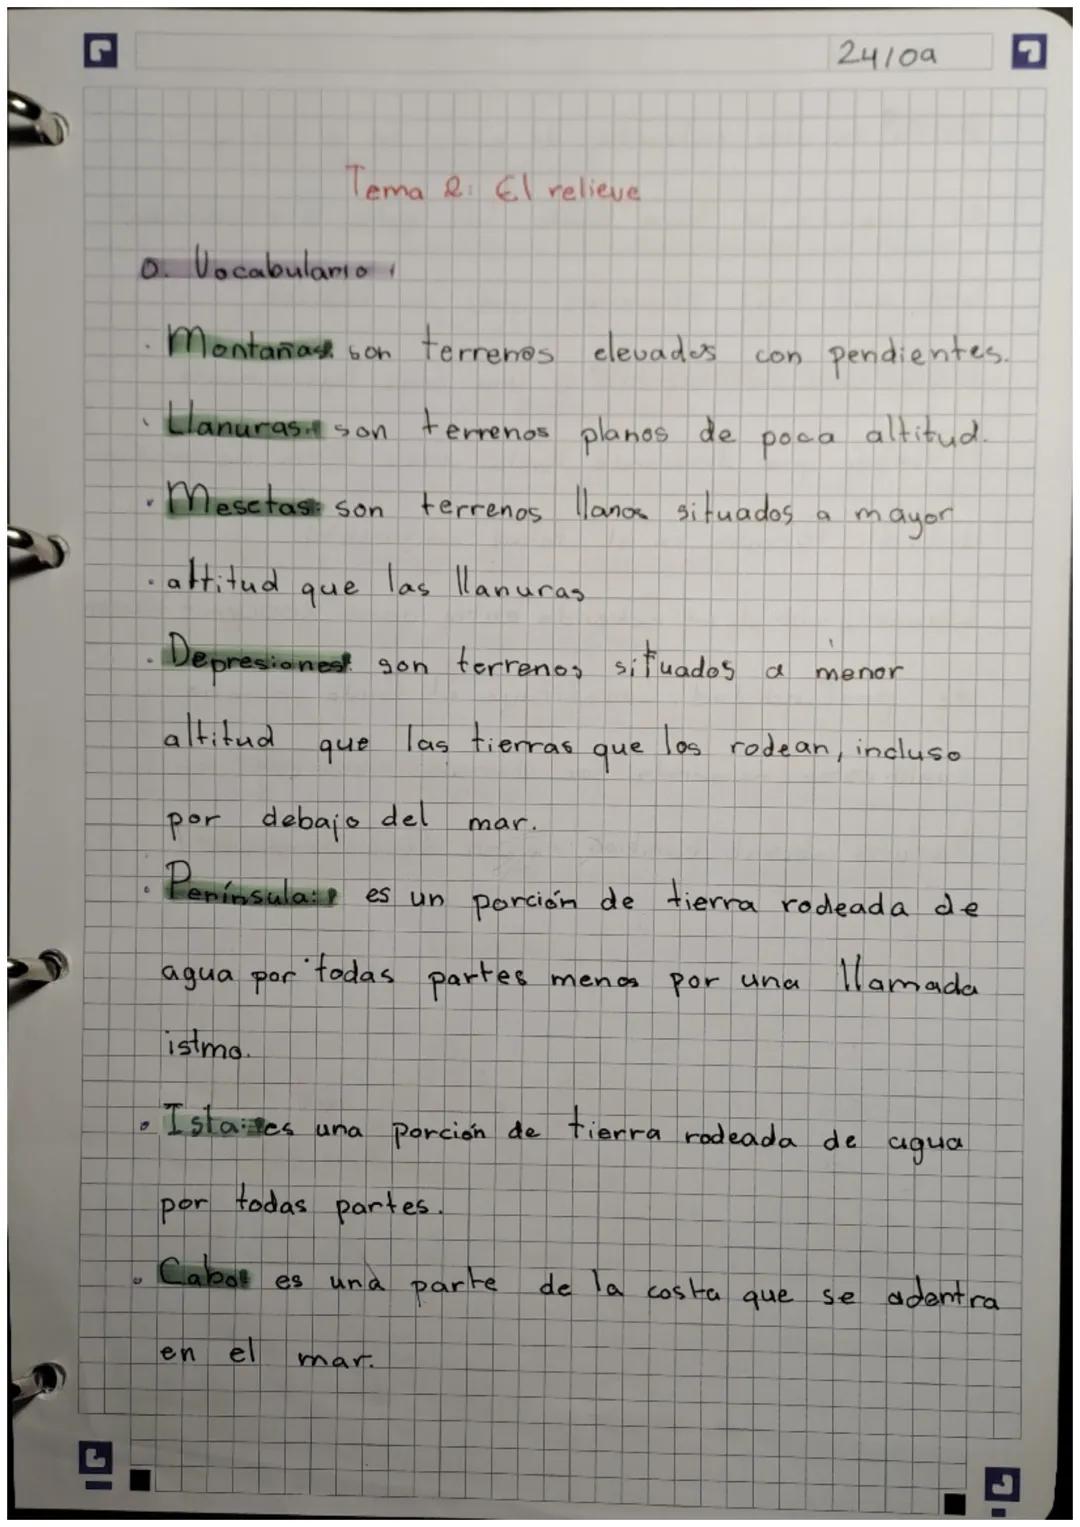 24/09
Tema 2: El relieve
0. Vocabulario:
· Montañas: son terrenos elevados con pendientes.
· Llanuras: son terrenos planos de poca altitud.
· Mesetas: son terrenos llanos situados a mayor
· altitud que las llanuras
· Depresiones: son terrenos situados a menor
altitud que las tierras que los rodean, incluso
por debajo del mar.
· Península: es un porción de tierra rodeada de
agua por todas partes menos por una llamada
istmo.
· Isla: es una porción de tierra rodeada de agua
por todas partes.
· Cabo: es una parte de la costa que se adentra
en el mar.